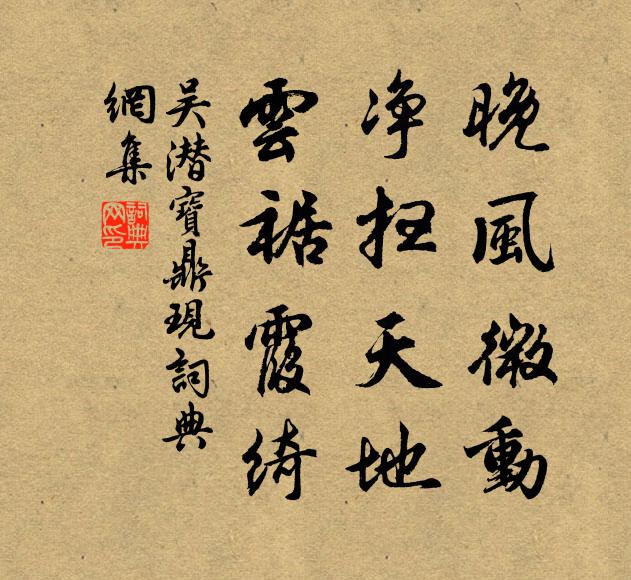 晚風微動
净扫天地
雲裾霞綺
吴潛寶鼎現詞典
網集
詞典
网印